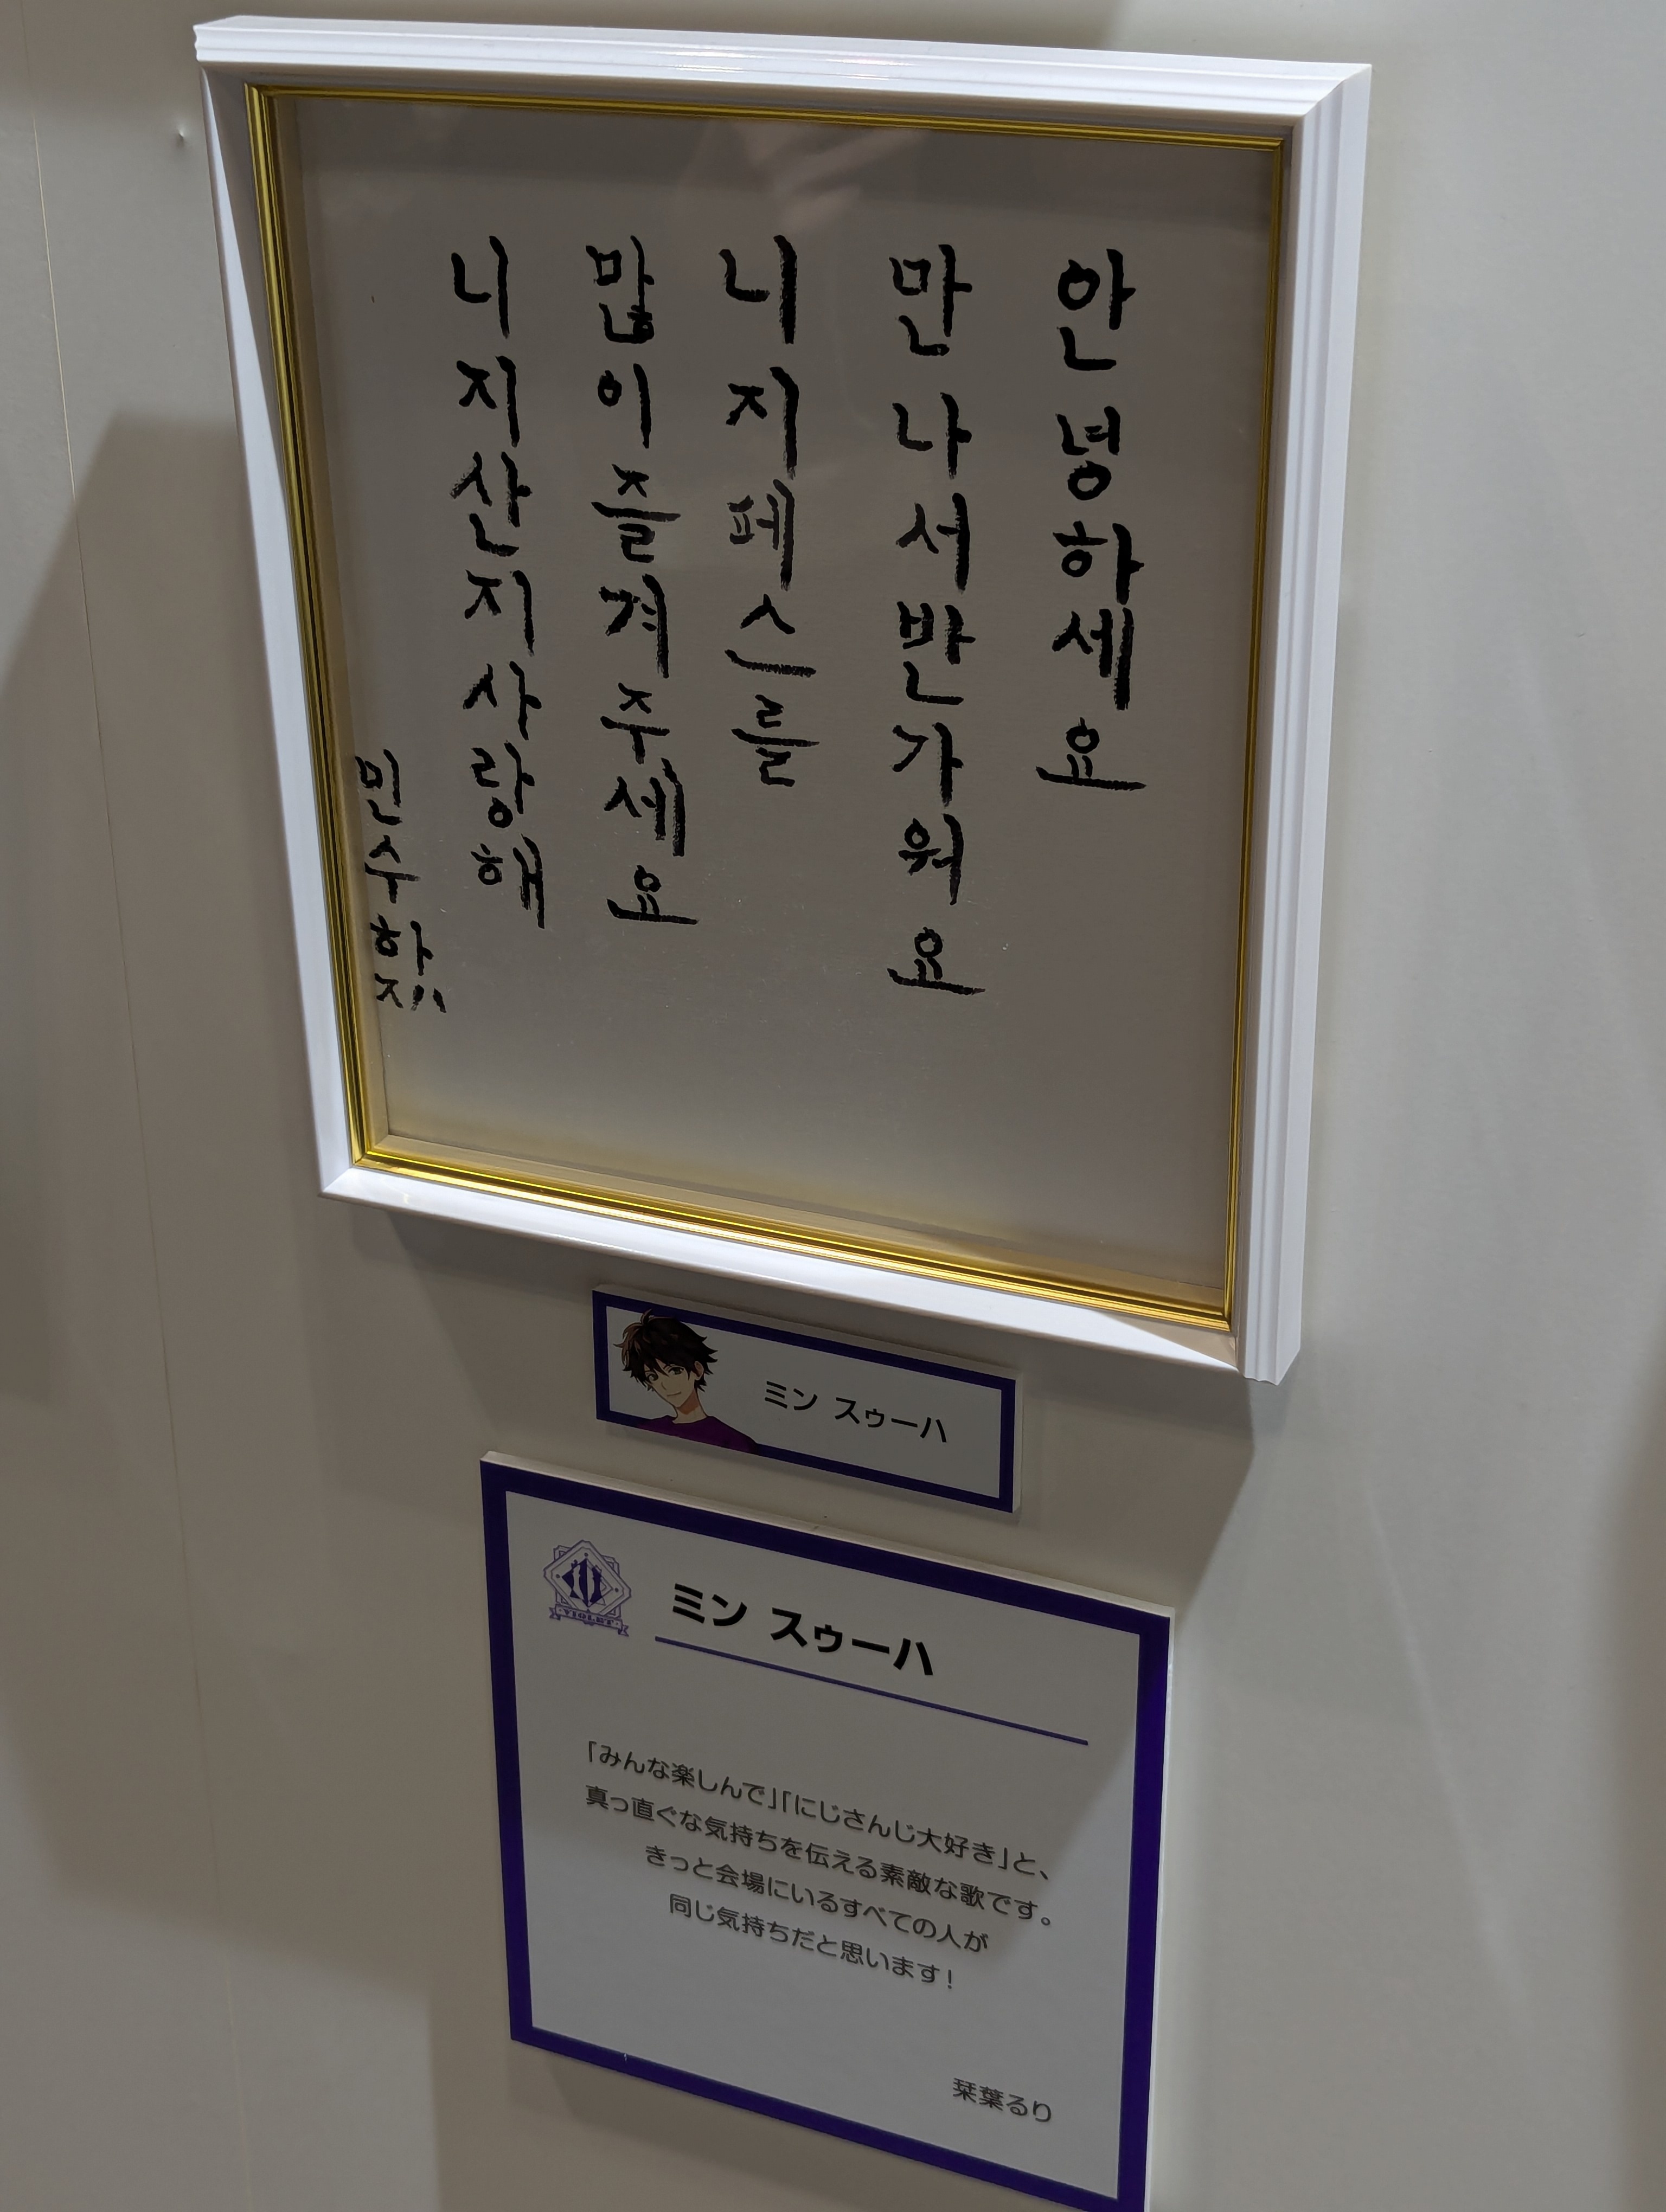 안녕하세요
만나서반가워요
니지페스를
많이즐겨주세요
니지산지사랑해
민수하
ミン スゥーハ
VIOLET
ミン スゥーハ
「みんな楽しんで」「にじさんじ大好き」と、
真っ直ぐな気持ちを伝える素敵な歌です。
きっと会場にいるすべての人が
同じ気持ちだと思います!
栞葉るり